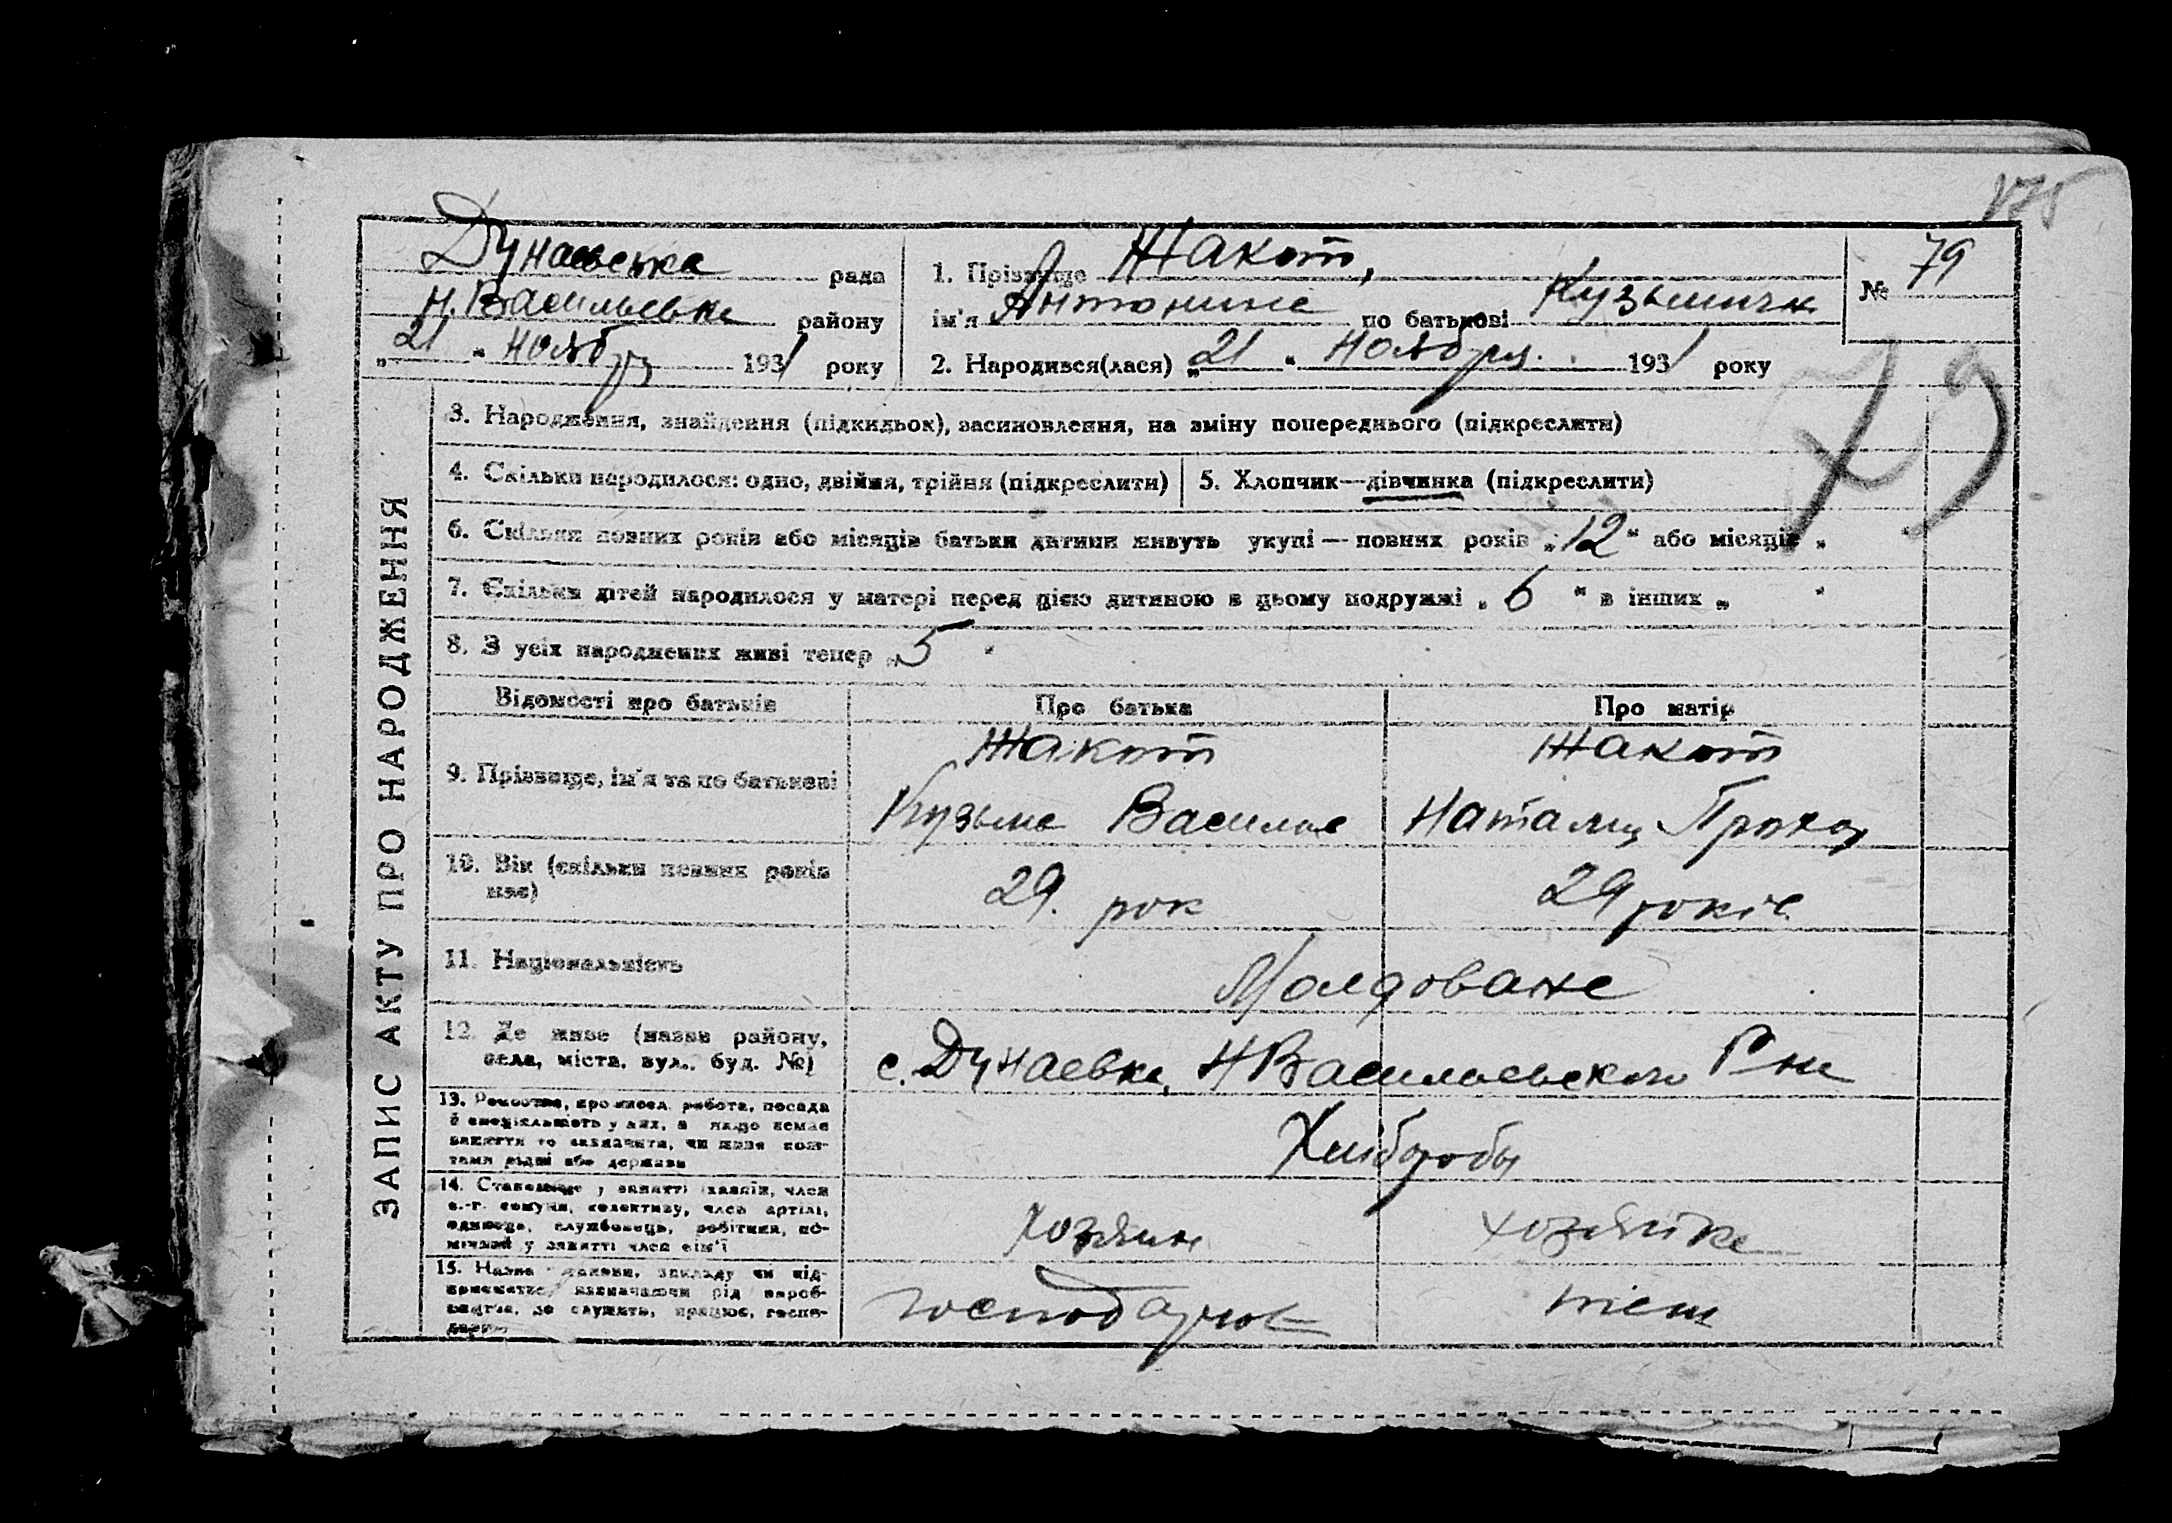 175
Дунаевська рада
Н.Васильевка району
„21“ Ноябр 1931 року
1. Прізвище Жакот,
ім'я Антонина по батькові Кузьминич
2. Народився(лася) „21“ Ноября. 1931 року
№ 79
79
ЗАПИС АКТУ ПРО НАРОДЖЕННЯ
3. Народження, знайдення (підкидьок), засиновлення, на зміну попереднього (підкреслити)
4. Скільки народилося: одно, двійня, трійня (підкреслити)
5. Хлопчик—дівчинка (підкреслити)
6. Скільки повних років або місяців батьки дитини живуть укупі — повних років „12“ або місяців „
7. Скільки дітей народилося у матері перед цією дитиною в цьому подружжі „6“ в інших „ “
8. З усіх народжених живі тепер „5“
Відомості про батьків Про батька Про матір
9. Прізвище, ім'я та по батькові
Жакот
Кузьма Василье
Жакот
Наталия Прохор
10. Вік (скільки повних років має)
29. рок
29 років
11. Національність
Молдоване
12. Де живе (назва району,
села, міста, вул., буд. №)
с. Дунаевка, Н Васильевського Р-на
13. Ремество, промисел, робота, посада
й спеціяльність у них, а якщо немає
заняття то зазначити, чи живе кош-
тами рідні або держави
Хліборобы
14. Становище у занятті (хазяїн, член
с.-г. комуни, колективу, член артілі,
одинець, службовець, робітник, по-
мічний у занятті член сім'ї
хозяин
хозяйка
15. Назва установи, закладу чи під-
приємства, зазначаючи рід вироб-
ництва, де служить, працює, госпо-
дарює